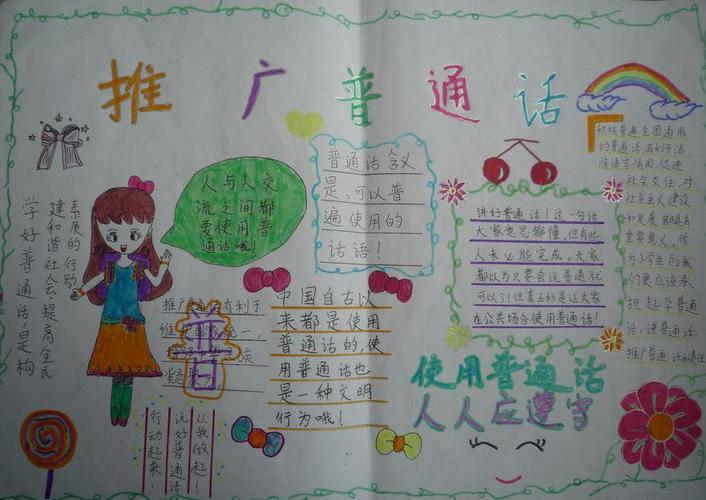 推广普通话
人与人交
流之间都
要使用普
通话哦!
普通话含义
是:可以普
遍使用的
话语!
积极普遍全国通用
的普通话,有利于消
除语言隔阂,促进
社会交往,对
社会主义建设
和发展都具有
重要意义,作
为小学生的我
们更应该承
担起学普通
话,讲普通话,
推广普通话的责任
讲好普通话!这一句话
大家意思都懂,但有些
人未必能完成。大家
都以为只要会说普通就
可以了!但真正的是让大家
在公共场合使用普通话!
学好普通话,是构
建和谐社会、提高全民
素质的行动
推广普通话有利于
维护国家统一,
族
凝聚力。
中国自古以
来都是使用
普通话的,使
用普通话也
是一种文明
行为哦!
使用普通话
人人应遵守
从我做起!
说好普通话
行动起来!